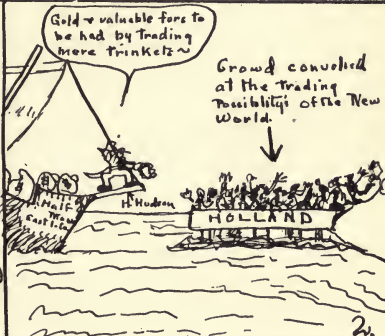 Gold & valuable furs to
be had by trading
mere trinkets~
Crowd convulsed
at the trading
Possibility's of the New
World.
H. Hudson
Half
Moon
HOLLAND
2.